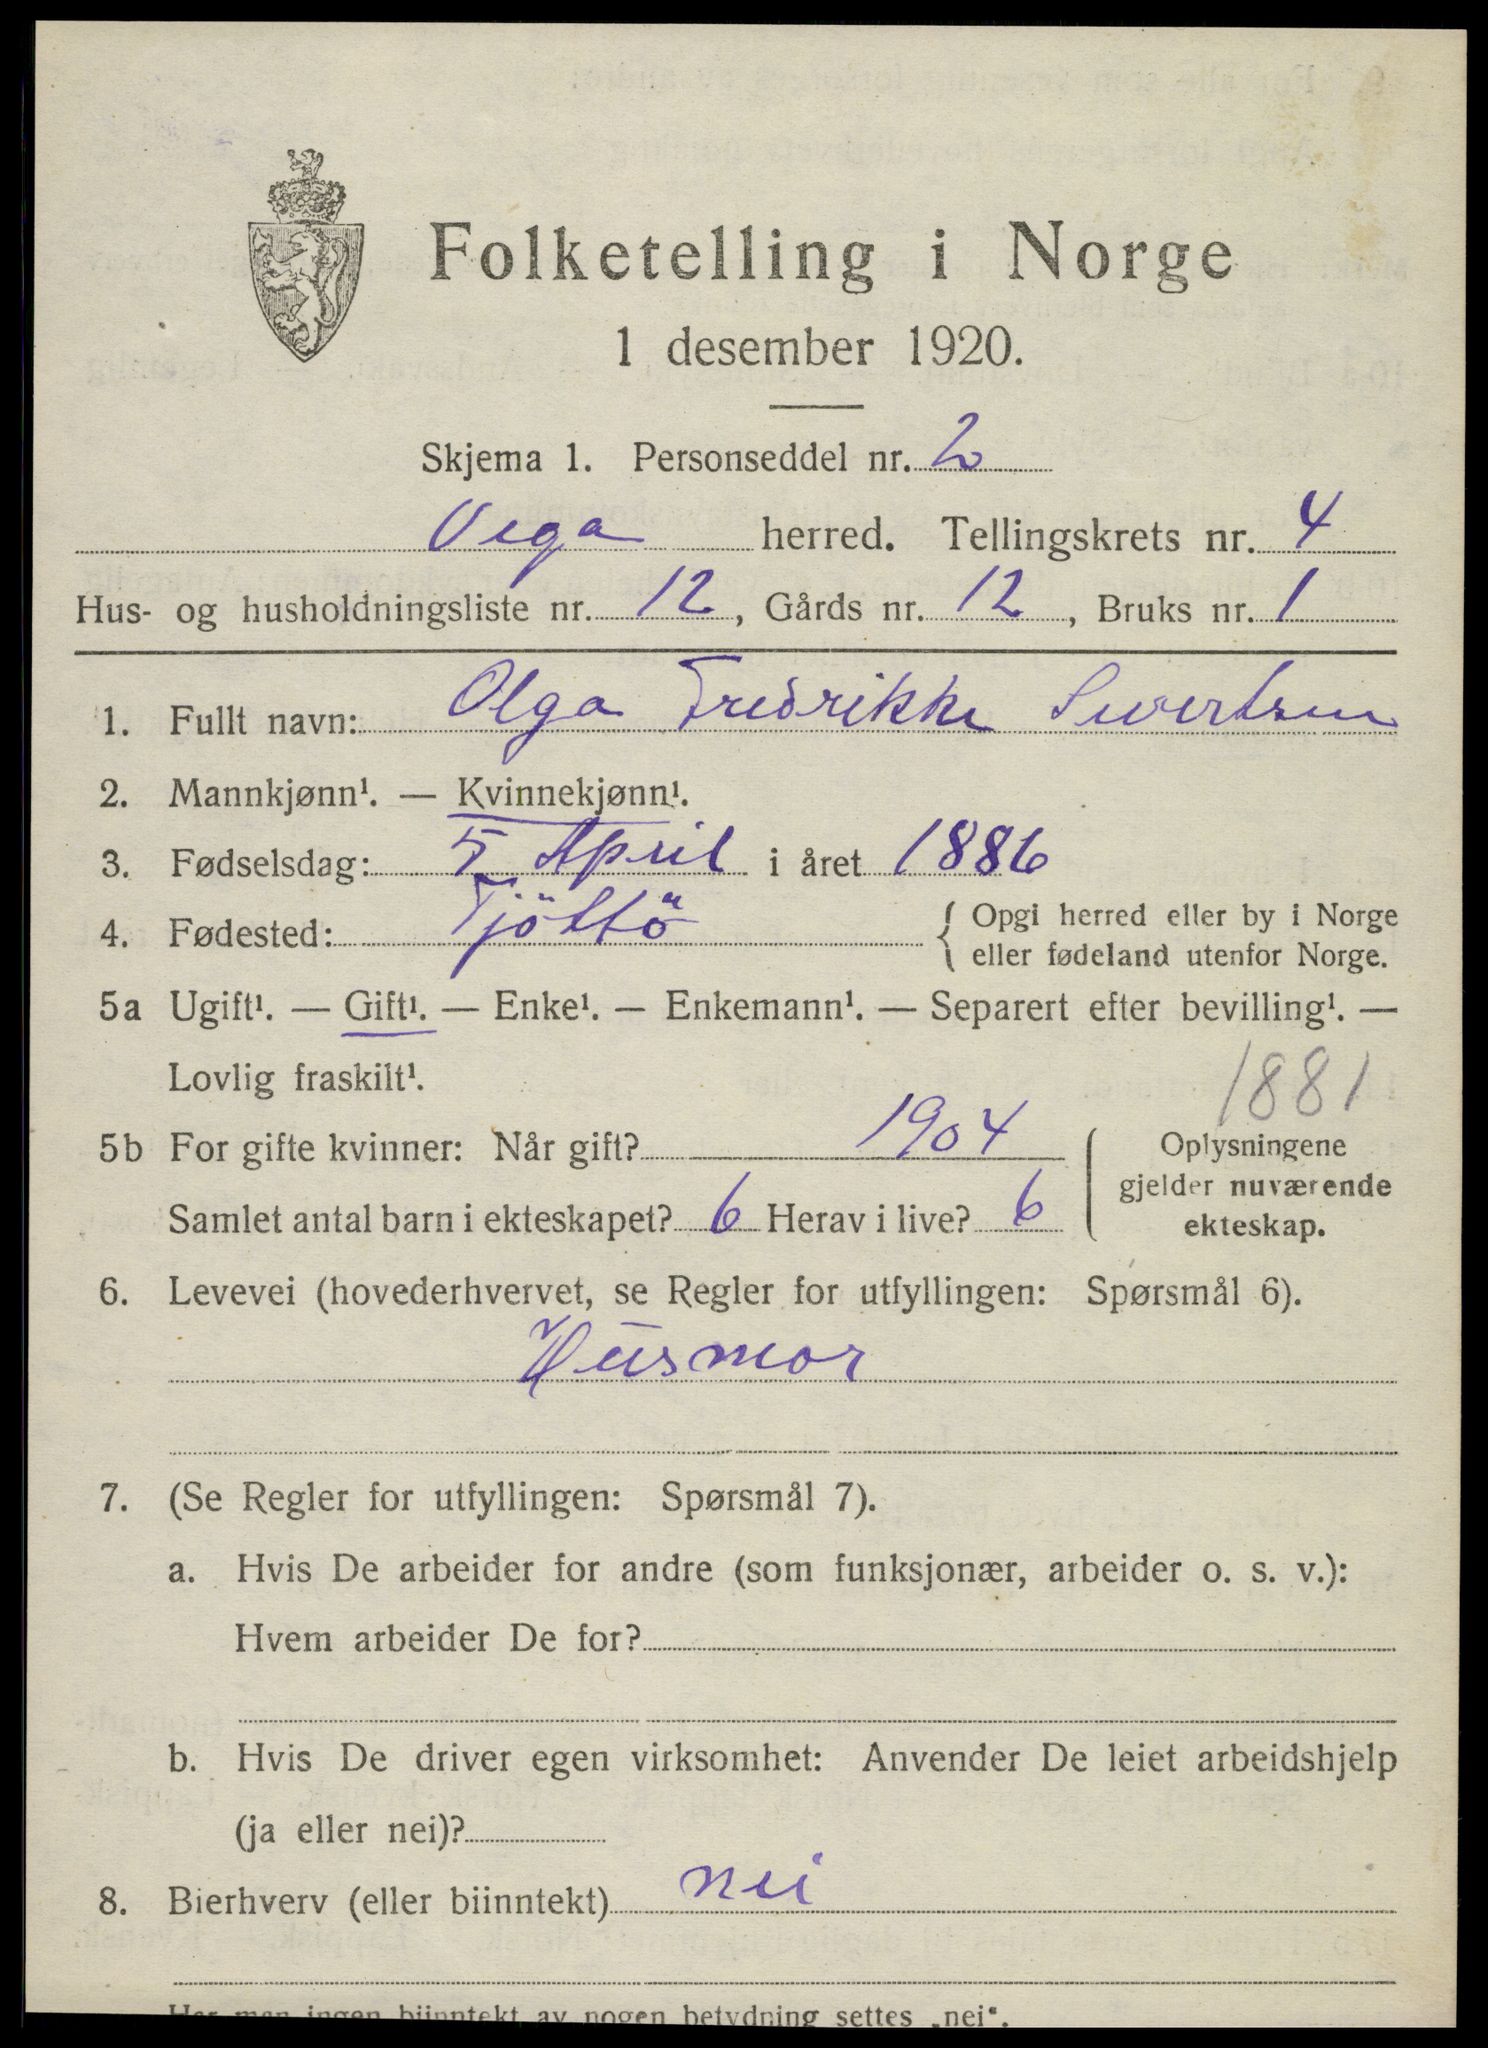 Folketelling i Norge
1 desember 1920.
Skjema 1. Personseddel nr. 2
Vega herred. Tellingskrets nr. 4
Hus- og husholdningsliste nr. 12, Gårds nr. 12, Bruks nr. 1
1. Fullt navn: Olga Fredrikke Sivertsen
2. Mannkjønn¹. — Kvinnekjønn¹.
3. Fødselsdag: 5 April i året 1886
4. Fødested: Tjöttö { Opgi herred eller by i Norge
eller fødeland utenfor Norge.
5a Ugift¹. — Gift¹. — Enke¹. — Enkemann¹. — Separert efter bevilling¹. —
Lovlig fraskilt¹.
1881
5b For gifte kvinner: Når gift? 1904 Oplysningene
gjelder nuværende
Samlet antal barn i ekteskapet? 6 Herav i live? 6 ekteskap.
6. Levevei (hovederhvervet, se Regler for utfyllingen: Spørsmål 6).
Husmor
7. (Se Regler for utfyllingen: Spørsmål 7).
a. Hvis De arbeider for andre (som funksjonær, arbeider o. s. v.):
Hvem arbeider De for?
b. Hvis De driver egen virksomhet: Anvender De leiet arbeidshjelp
(ja eller nei)?
8. Bierhverv (eller biinntekt) nei
Har man ingen biinntekt av nogen betydning settes „nei".